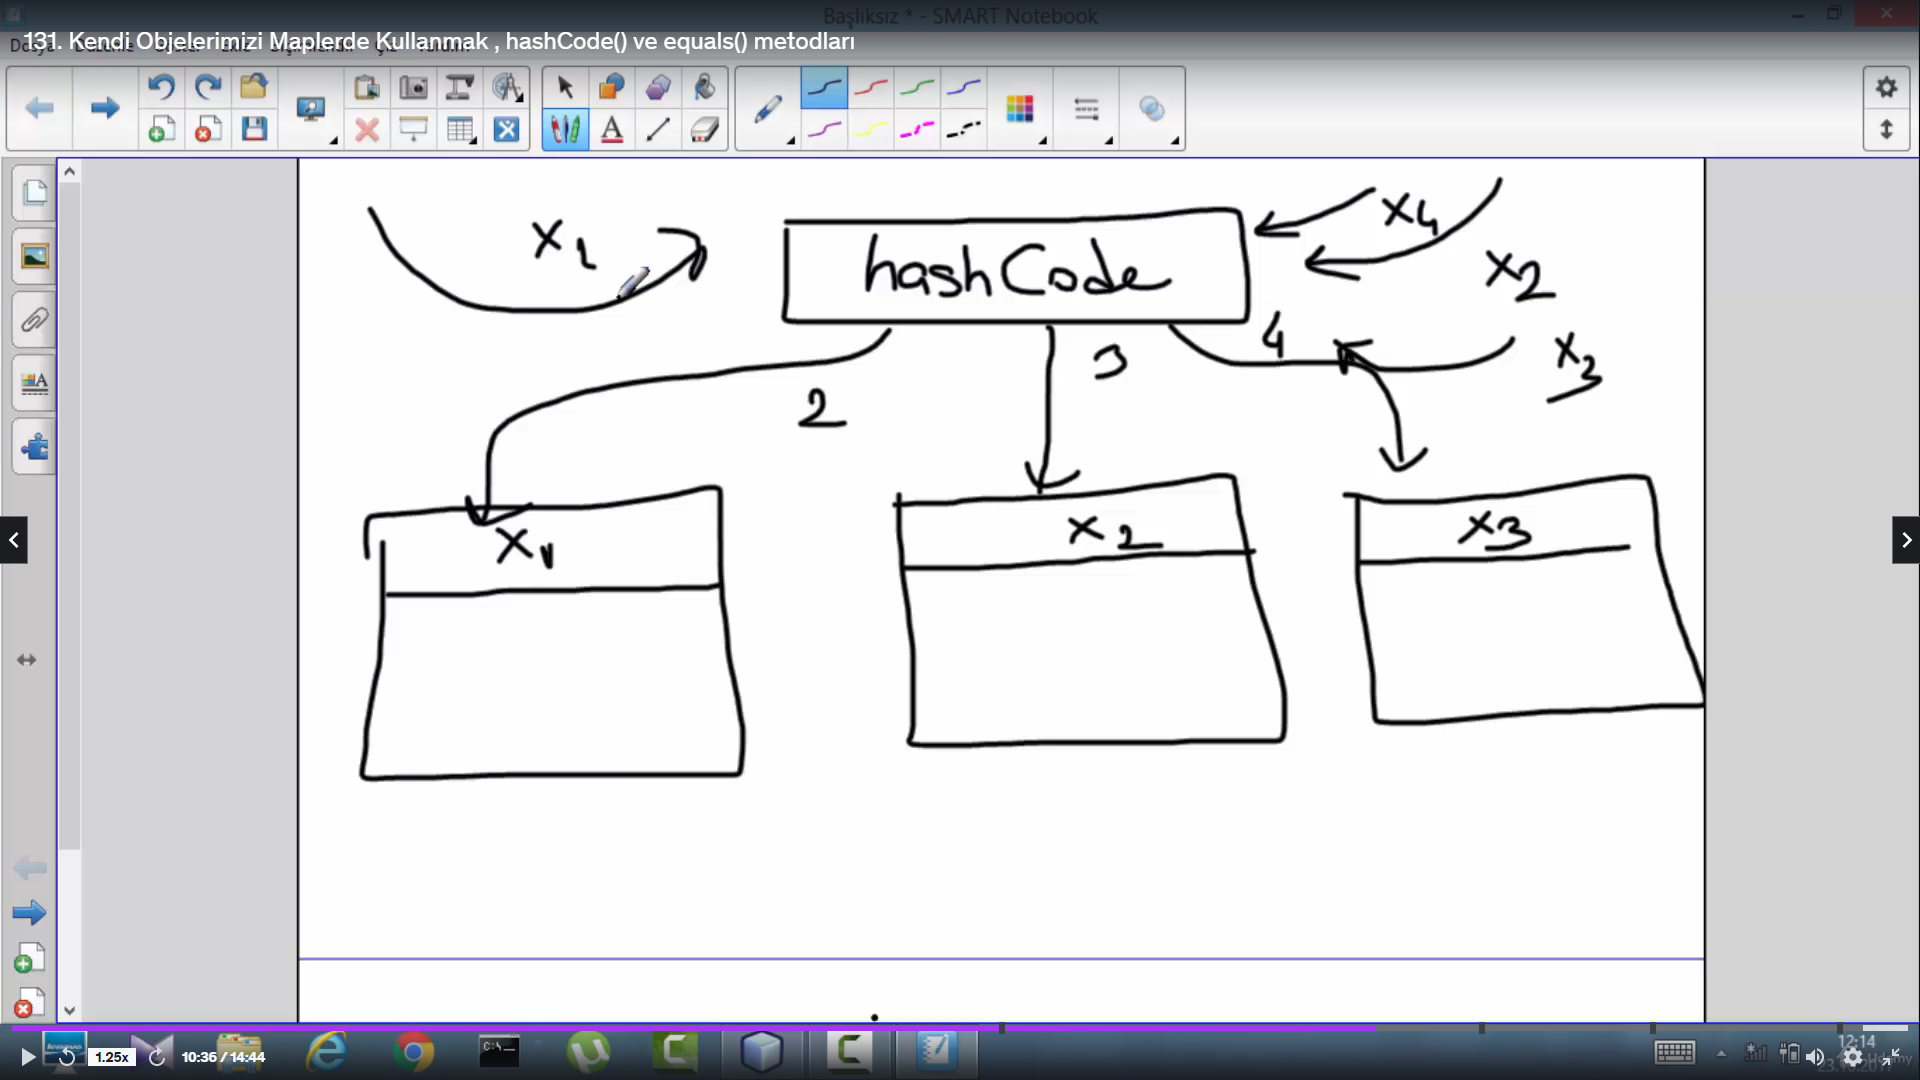 Başlıksız * - SMART Notebook
131. Kendi Objelerimizi Maplerde Kullanmak , hashCode() ve equals() metodları
x1
hashCode
x4
x2
2
3
4
x3
x1
x2
x3
1.25x
10:36 / 14:44
12:14